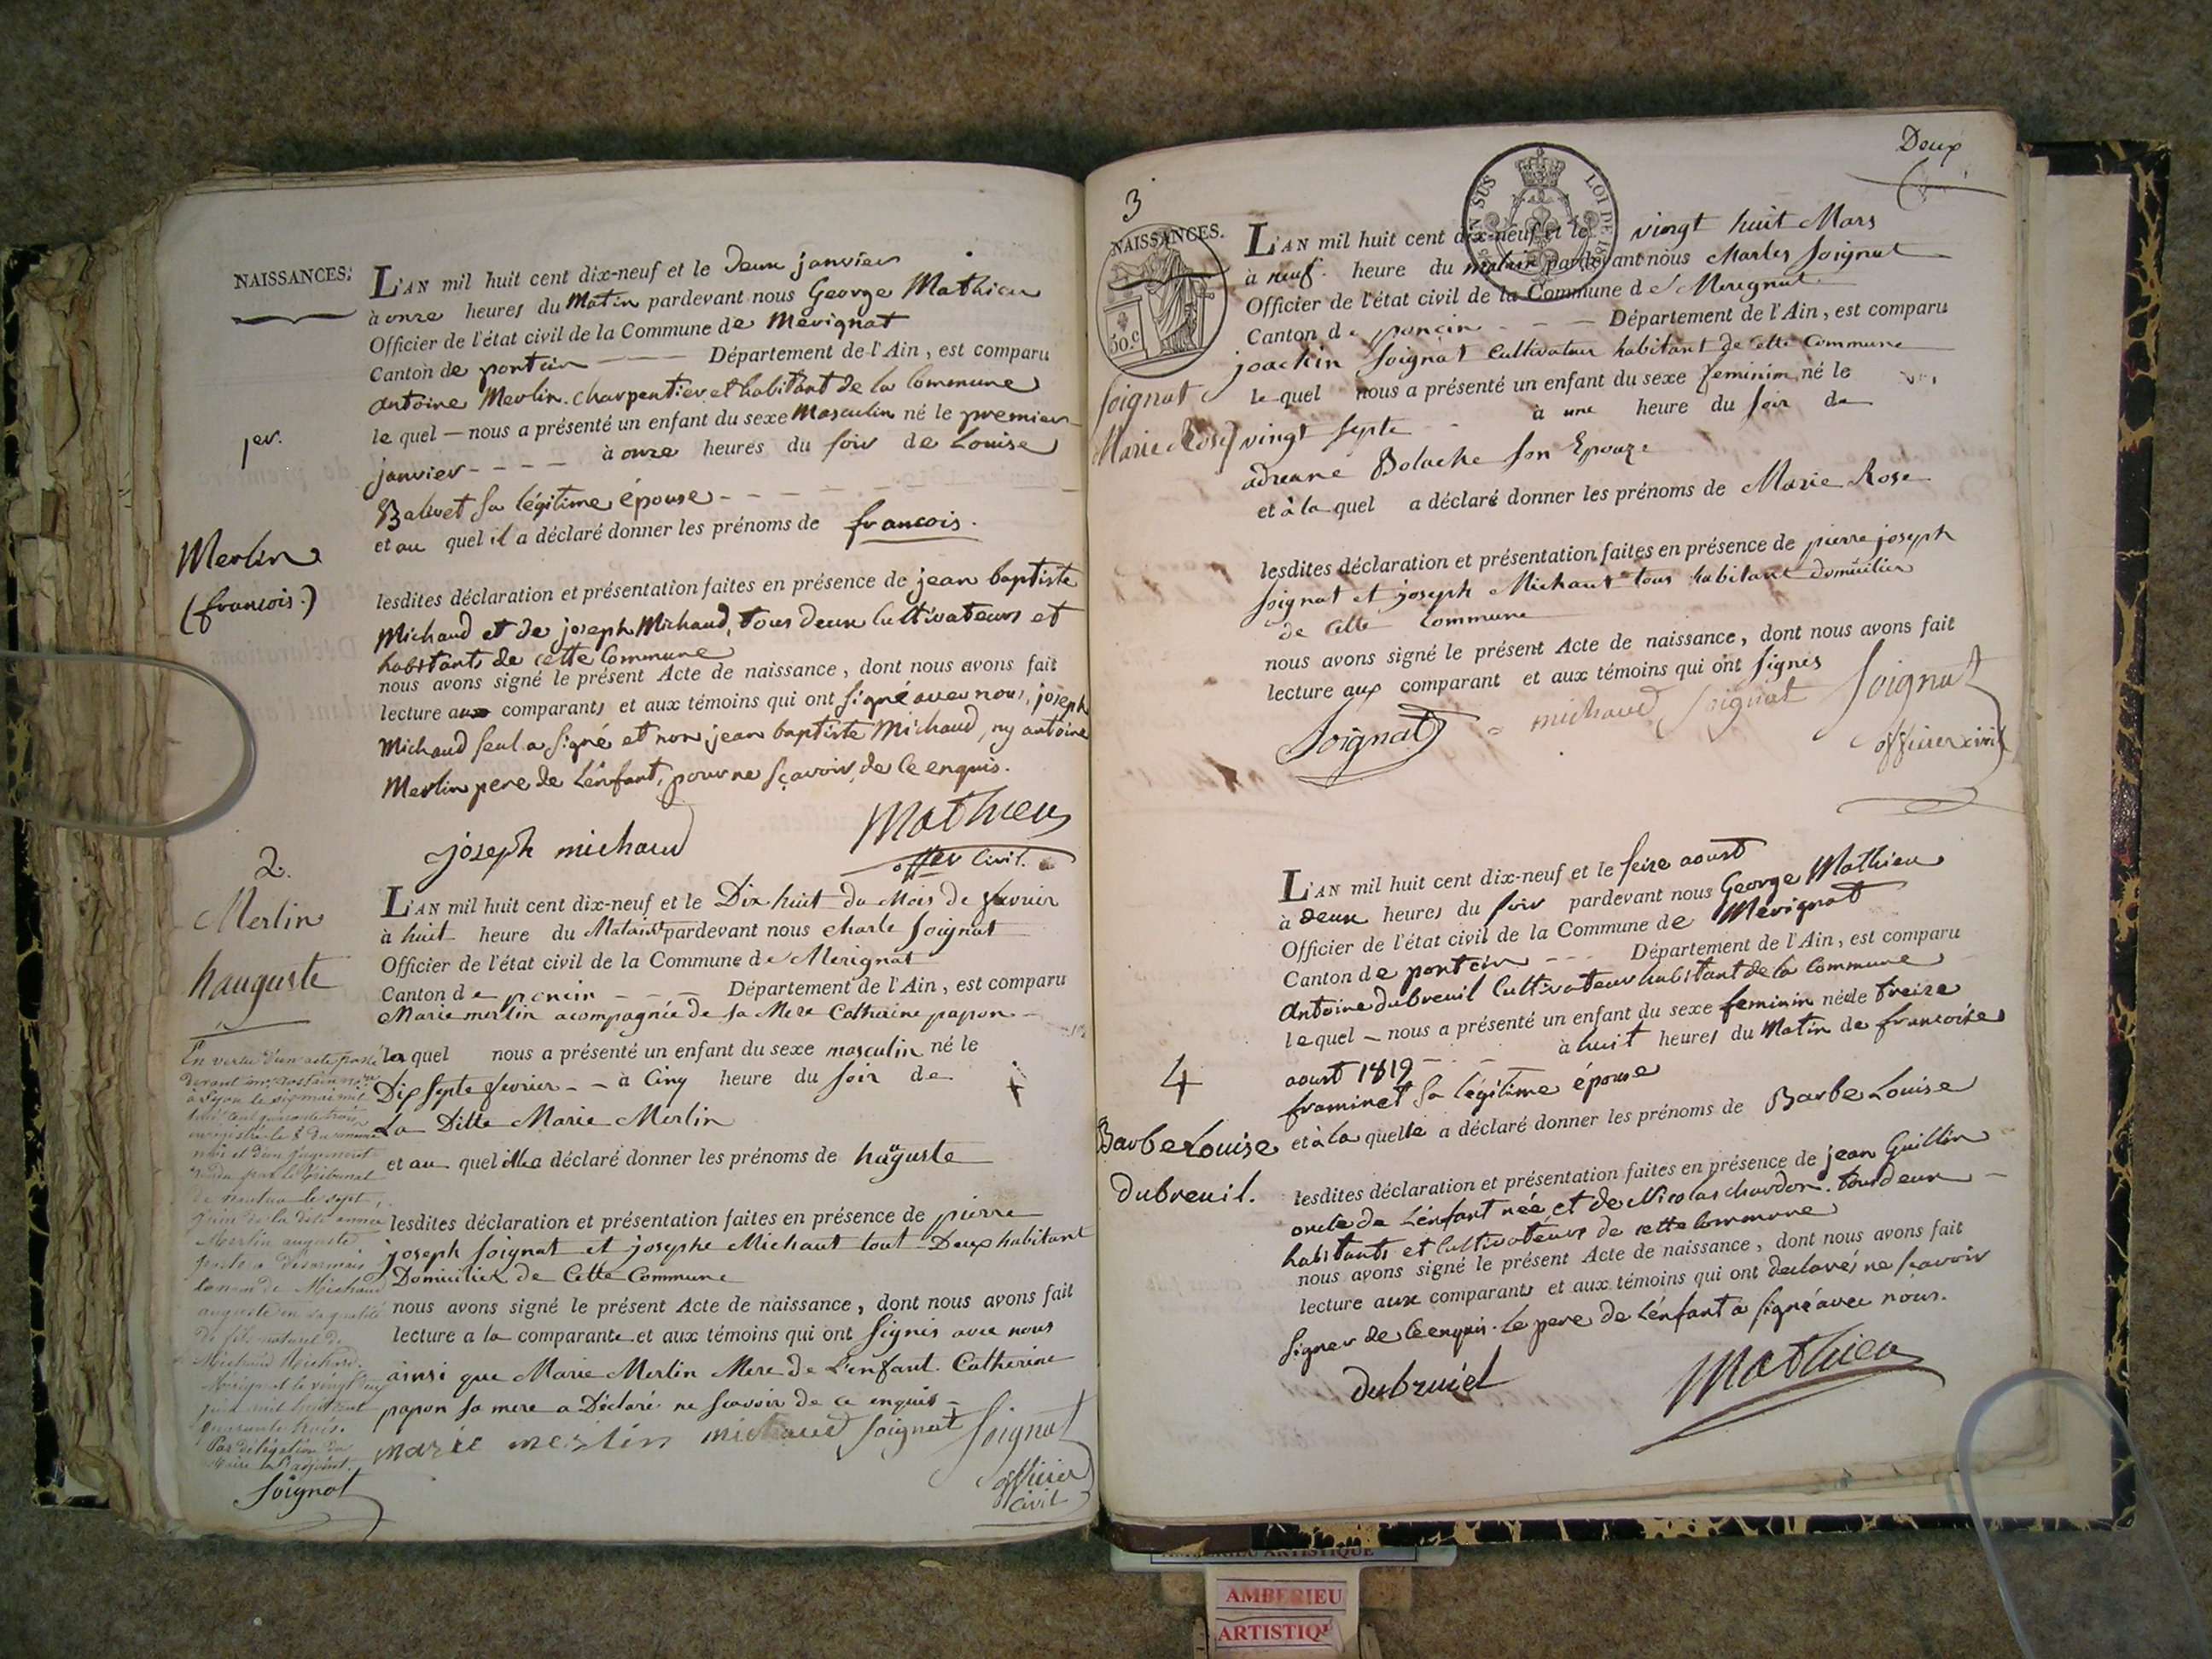 NAISSANCES.
1er.
Merlin
(francois.)
L'AN mil huit cent dix-neuf et le deux janvier
à onze heures du Matin pardevant nous George Mathieu
Officier de l'état civil de la Commune de Mérignat
Canton de pontcin Département de l'Ain, est comparu
antoine Merlin charpentier et habitant de la Commune
le quel nous a présenté un enfant du sexe Masculin né le premier
janvier à onze heures du soir de Louise
Balivet sa légitime épouse
et au quel il a déclaré donner les prénoms de francois.
lesdites déclaration et présentation faites en présence de jean baptiste
Michaud et de joseph Michaud, tous deux Cultivateurs et
habitants de cette Commune
nous avons signé le présent Acte de naissance, dont nous avons fait
lecture aux comparants et aux témoins qui ont signé avec nous, joseph
Michaud seul a signé et non jean baptiste Michaud, ny antoine
Merlin pere de L'enfant, pour ne sçavoir, de Ce enquis.
joseph michaud Mathieu
offer Civil.
2.
Merlin
hauguste
En vertu d'un acte passé
devant
à Lyon le six mai mil
huit cent quarante trois
enregistré le 8 du même
mois et d'un jugement
rendu par le tribunal
de nantua le sept
juin de la dite année
Merlin auguste
porte a désormais
le nom de Michaud
auguste en sa qualité
de fils naturel de
Michaud
Mérignat le vingt
juin mil huit cent
quarante trois.
Par délégation du
Maire l'adjoint.
Soignat
L'AN mil huit cent dix-neuf et le Dix huit du Mois de fevrier
à huit heure du Matain pardevant nous charle Soignat
Officier de l'état civil de la Commune de Merignat
Canton de poncin Département de l'Ain, est comparu
Marie merlin acompagnée de sa Mere Catherine papon
la quel nous a présenté un enfant du sexe masculin né le
Dix septe fevrier à Cinq heure du soir de
La Ditte Marie Merlin
et au quel ella déclaré donner les prénoms de hauguste
lesdites déclaration et présentation faites en présence de pierre
joseph Soignat et josephe Michaut tout Deux habitant
Domicilier de Cette Commune
nous avons signé le présent Acte de naissance, dont nous avons fait
lecture a la comparante et aux témoins qui ont signés avec nous
ainsi que Marie Merlin Mere de L'enfant. Catherine
papon sa mere a Déclaré ne scavoir de ce enquis
marie merlin michaud Soignat Soignat
officier
Civil
Deux
3
NAISSANCES.
50.c
Soignat
Marie Rose
L'AN mil huit cent dix-neuf et le vingt huit Mars
à neuf heure du matain pardevant nous Charles Soignat
Officier de l'état civil de la Commune de Merignat
Canton de poncin Département de l'Ain, est comparu
joachin Soignat Cultivateur habitant de cette Commune
le quel nous a présenté un enfant du sexe feminim né le
vingt septe à une heure du soir de
adreane Bolache son Epouze
et à la quel a déclaré donner les prénoms de Marie Rose
lesdites déclaration et présentation faites en présence de pierre joseph
Soignat et joseph Michaut tous habitant domicilier
de Cette Commune
nous avons signé le présent Acte de naissance, dont nous avons fait
lecture aux comparant et aux témoins qui ont signés
Soignat michaud Soignat Soignat
officier civil
4
Barbe Louise
dubreuil.
L'AN mil huit cent dix-neuf et le seize aoust
à deux heures du soir pardevant nous George Mathieu
Officier de l'état civil de la Commune de Mérignat
Canton de pontcin Département de l'Ain, est comparu
Antoine dubreuil Cultivateur habitant de la Commune
le quel nous a présenté un enfant du sexe feminin née le treize
aoust 1819 à huit heures du Matin de francoise
framinet sa légitime épouse
et à la quelle a déclaré donner les prénoms de Barbe Louise
lesdites déclaration et présentation faites en présence de jean Guillin
oncle de L'enfant née, et de Nicolas chardon. tous deux
habitants et Cultivateurs de cette Commune
nous avons signé le présent Acte de naissance, dont nous avons fait
lecture aux comparants et aux témoins qui ont declarés ne sçavoir
signer de Ce enquis. Le pere de L'enfant a signé avec nous.
dubruiel Mathieu
AMBERIEU ARTISTIQUE
AMBERIEU
ARTISTIQU